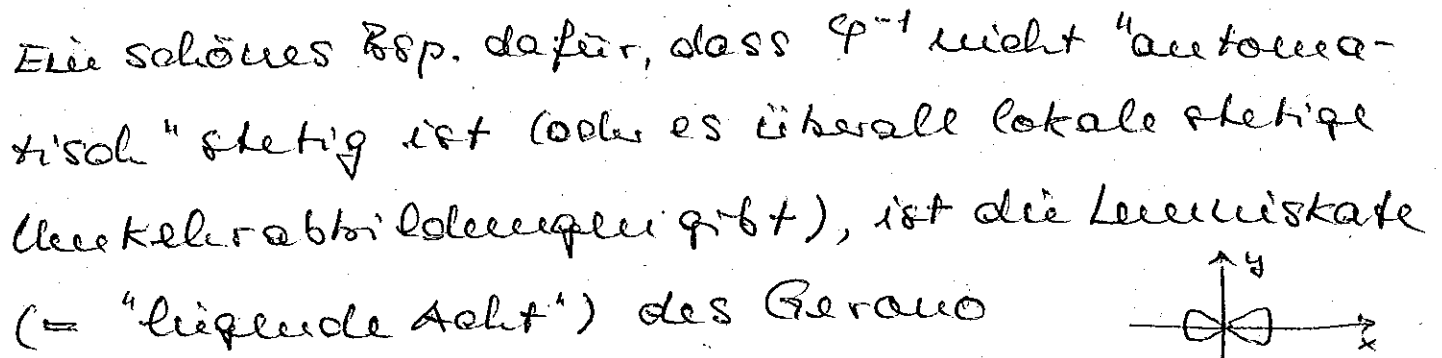 Ein schönes Bsp. dafür, dass φ⁻¹ nicht "automa-
tisch" stetig ist (oder es überall lokale stetige
Umkehrabbildungen gibt), ist die Lemniskate
(= "liegende Acht") des Gerono
y
x